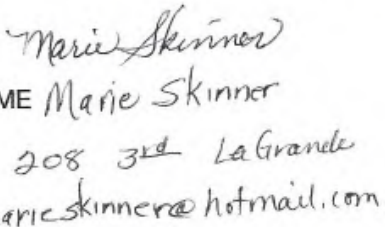 Marie Skinner
ME Marie Skinner
208 3rd LaGrande
arieskinner@hotmail.com